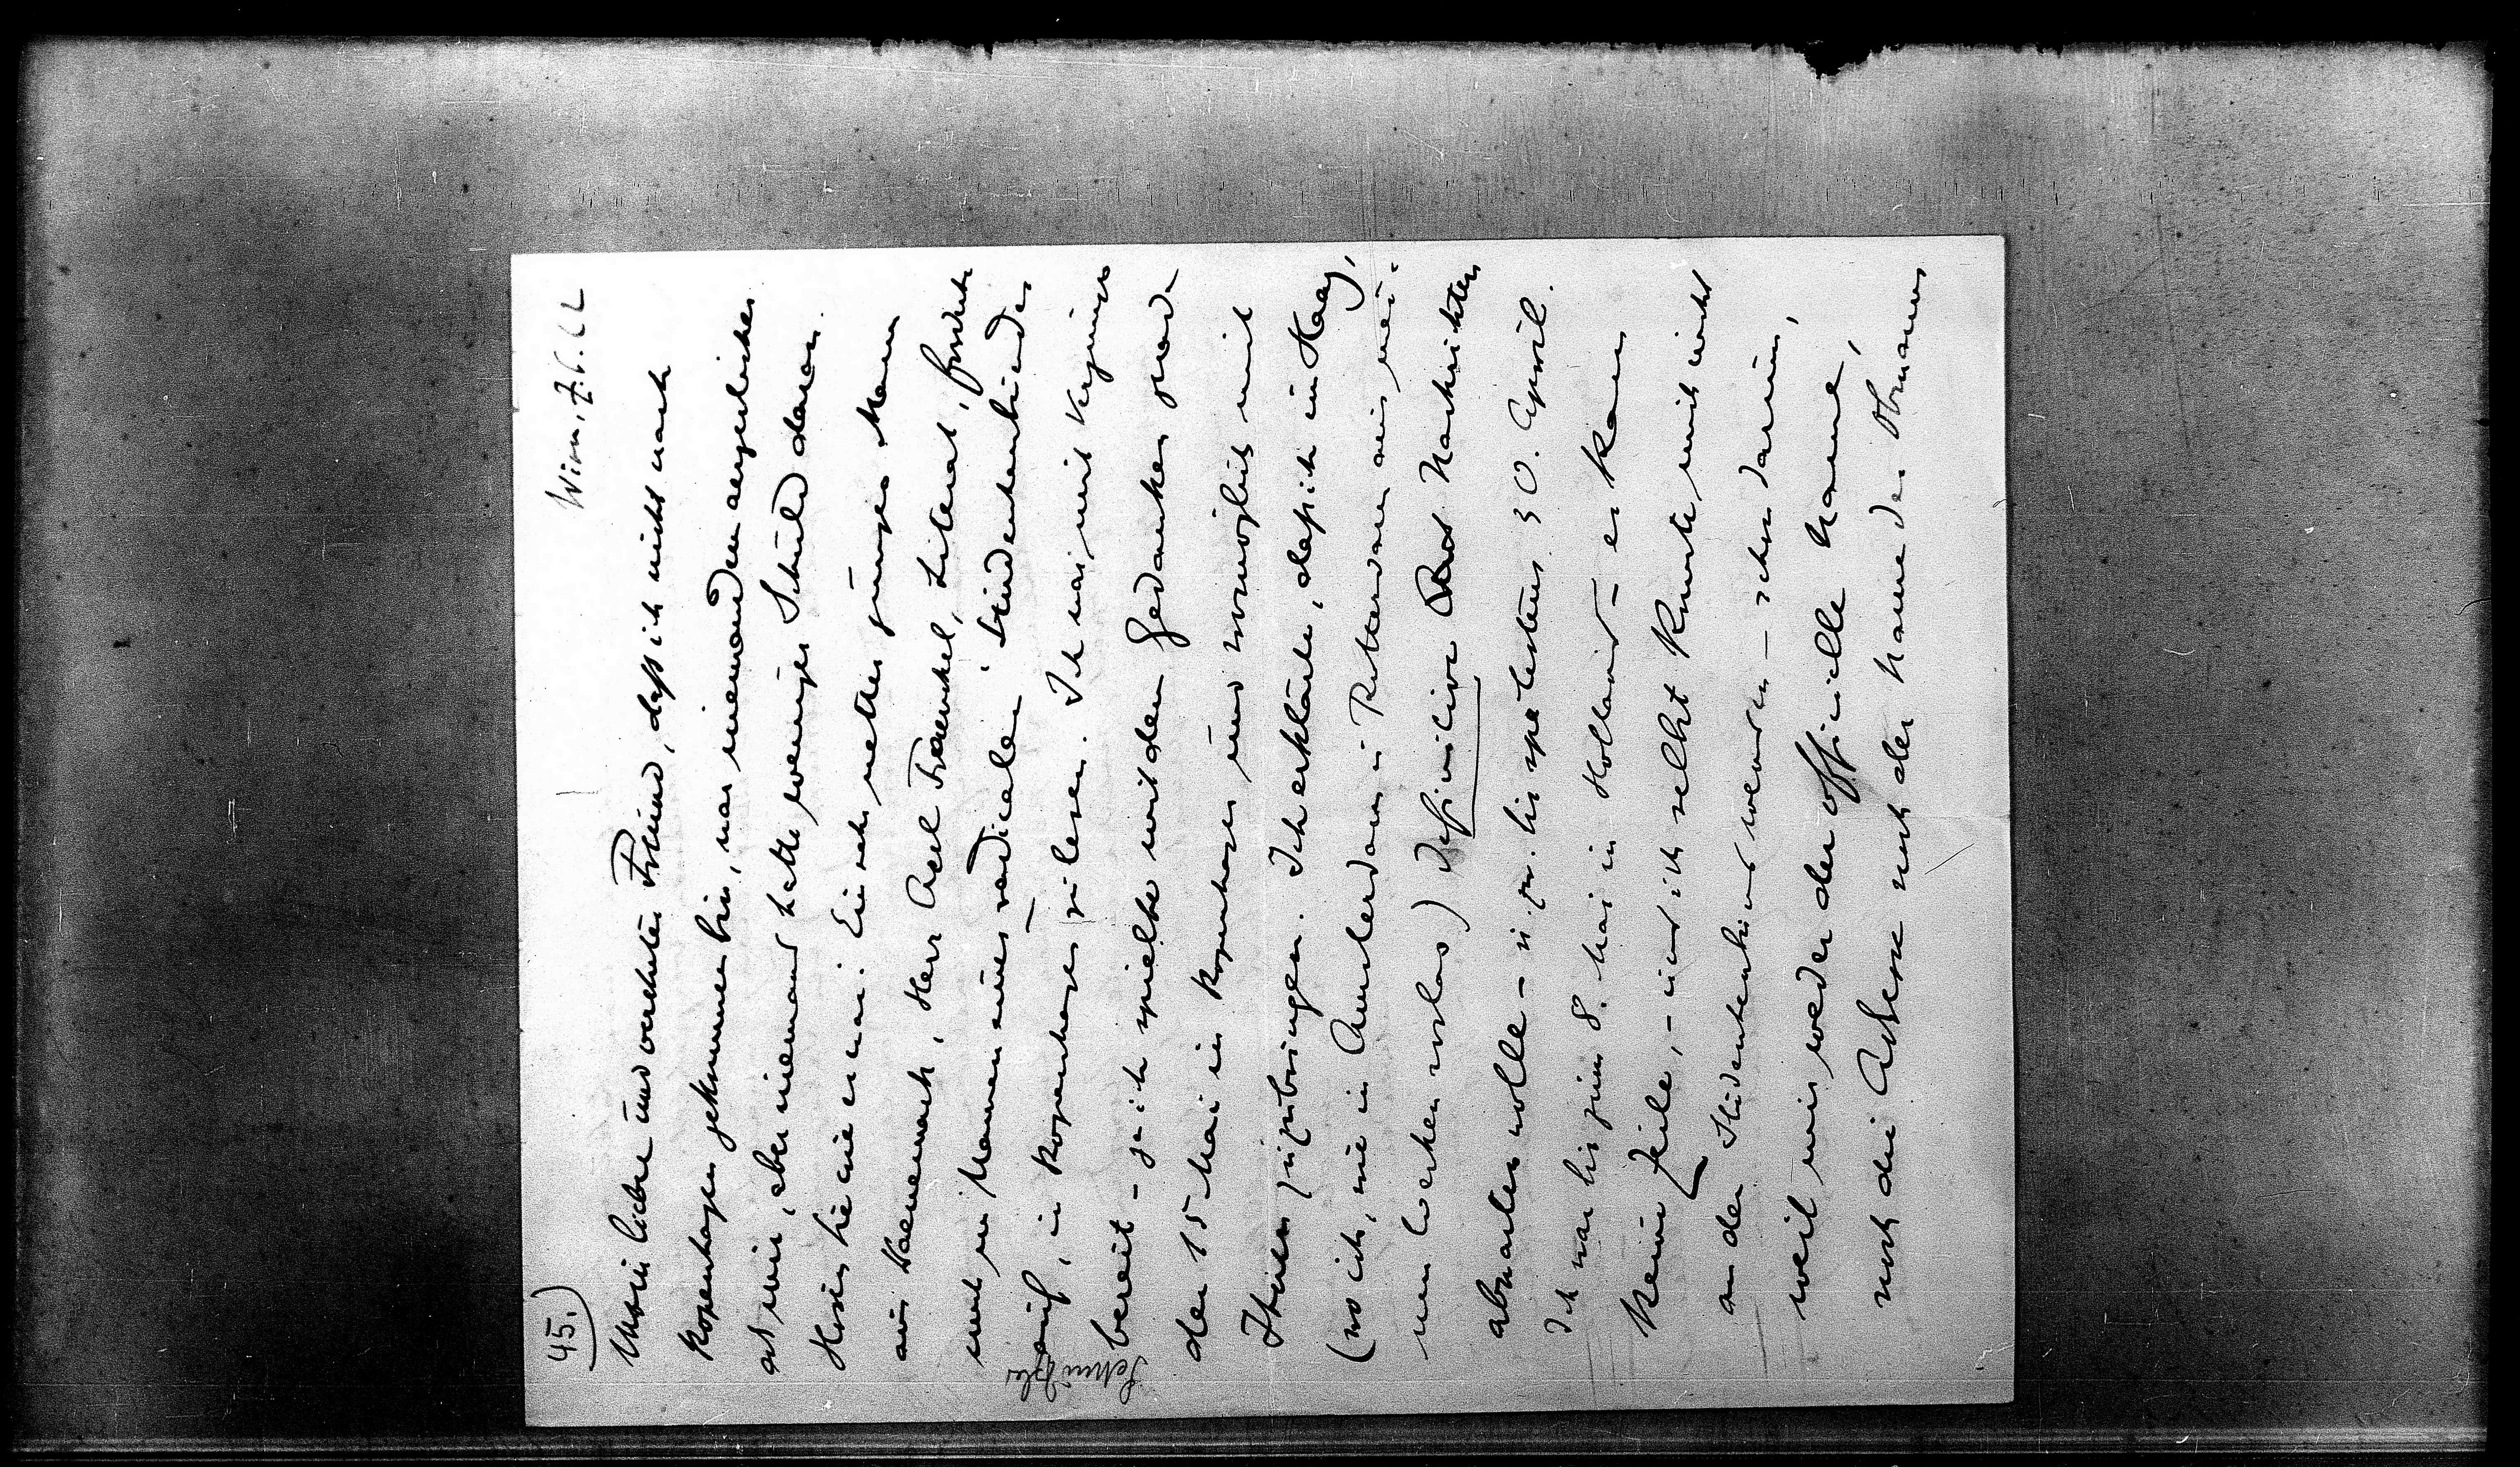 45.)
Wien, 7.6.22
Mein lieber und verehrter Freund, dass ich nicht nach
Kopenhagen gekommen bin, war niemandem aergerlicher
als mir, aber niemand hatte weniger Schuld daran.
Hören Sie wie es war: Ein sehr netter junger Mann
aus Daenemark, Herr Axel Fraenkel, Literat, forderte
mich im Namen eines radicalen Studentenbundes
auf, in Kopenhagen zu lesen. Ich war mit Vergnügen
bereit – ja ich spielte mit dem Gedanken grade
den 15 Mai in Kopenhagen und womöglich mit
Ihnen zuzubringen. Ich erklärte, dass ich im Haag,
(wo ich, wie in Amsterdam u Rotterdam aus mei-
nen Sachen vorlas) definitive Nachrichten
abwarten wolle – u. zw. bis spätestens 30. April.
Ich war bis zum 8. Mai in Holland – es kam
keine Zeile, – und ich selbst konnte mich nicht
an den Studentenbund wenden – schon darum,
weil mir weder der officielle Name,
noch die Adresse noch der Name des Obmanns
Schnitzler